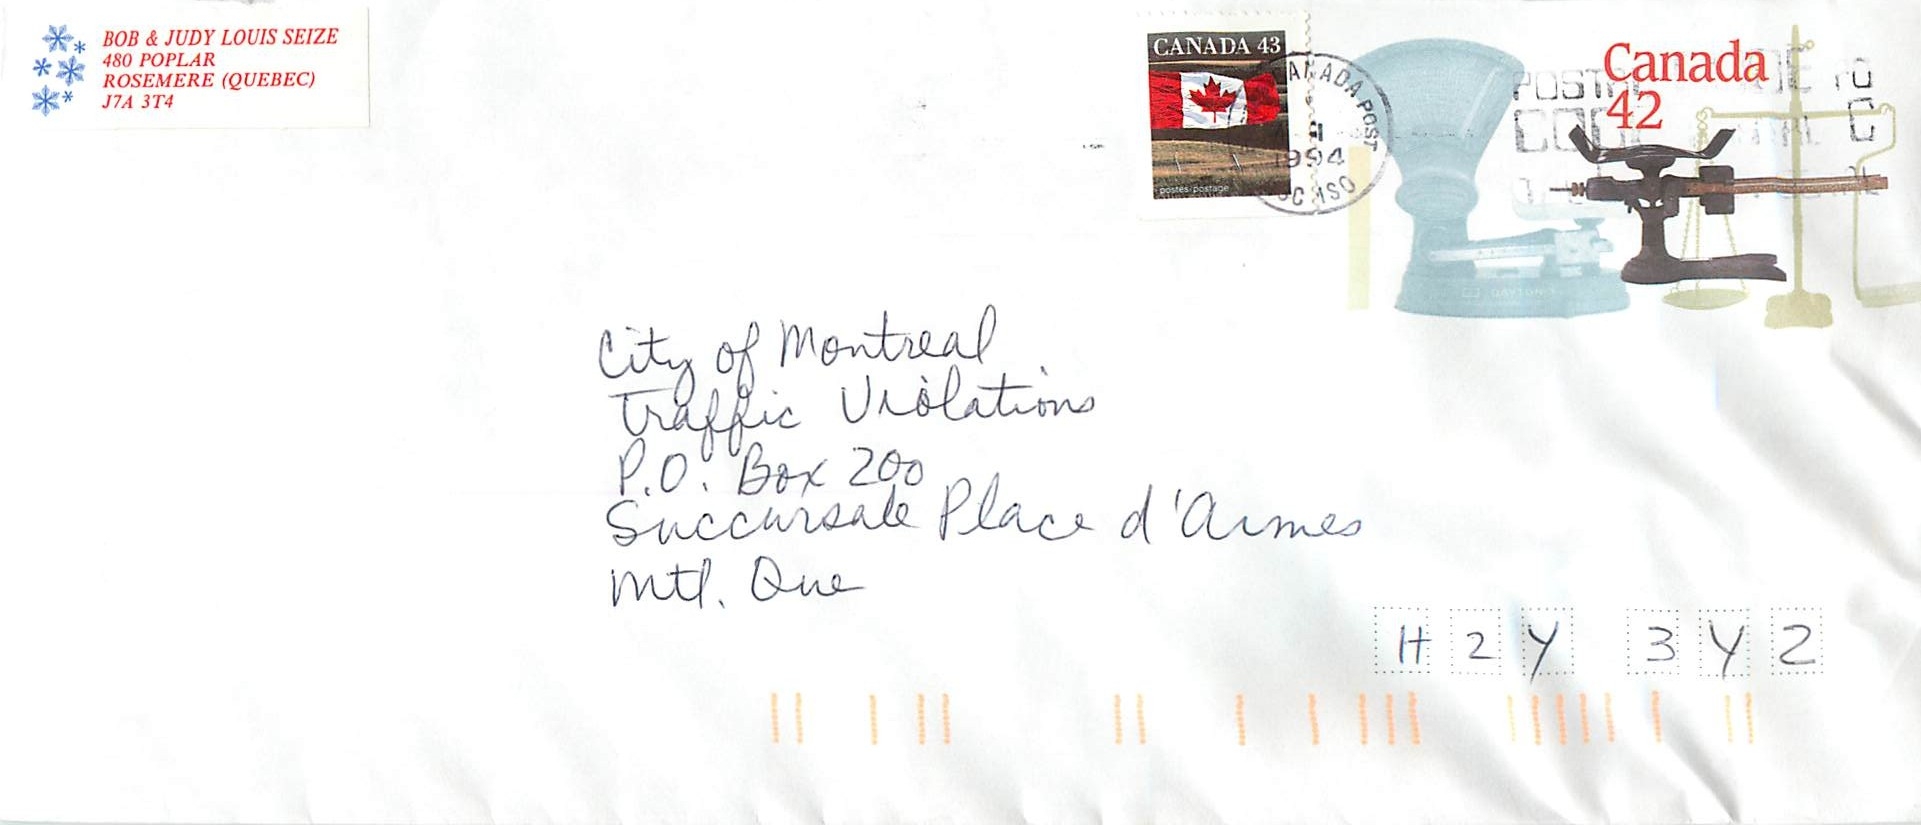 BOB & JUDY LOUIS SEIZE
480 POPLAR
ROSEMERE (QUEBEC)
J7A 3T4
CANADA 43
postes/postage
CANADA POST
1994
Canada
42
DAYTON
City of Montreal
Traffic Violations
P.O. Box 200
Succursale Place d'Armes
Mtl. Que
H2Y 3Y2